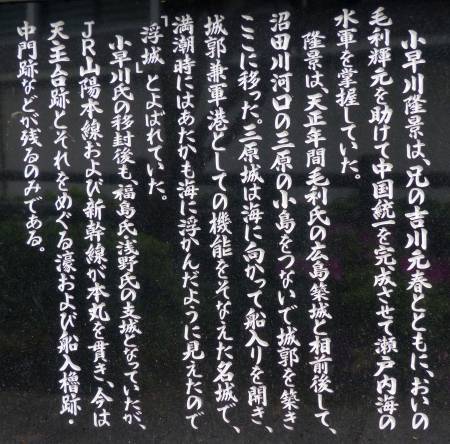 小早川隆景は、兄の吉川元春とともに、おいの
毛利輝元を助けて中国統一を完成させて瀬戸内海の
水軍を掌握していた。
隆景は、天正年間毛利氏の広島築城と相前後して、
沼田川河口の三原の小島をつないで城郭を築き
ここに移った。三原城は海に向かって船入りを開き、
城郭兼軍港としての機能をそなえた名城で、
満潮時にはあたかも海に浮かんだように見えたので
「浮城」とよばれていた。
小早川氏の移封後も、福島氏浅野氏の支城となっていたが、
JR山陽本線および新幹線が本丸を貫き、今は
天主台跡とそれをめぐる濠および船入櫓跡・
中門跡などが残るのみである。